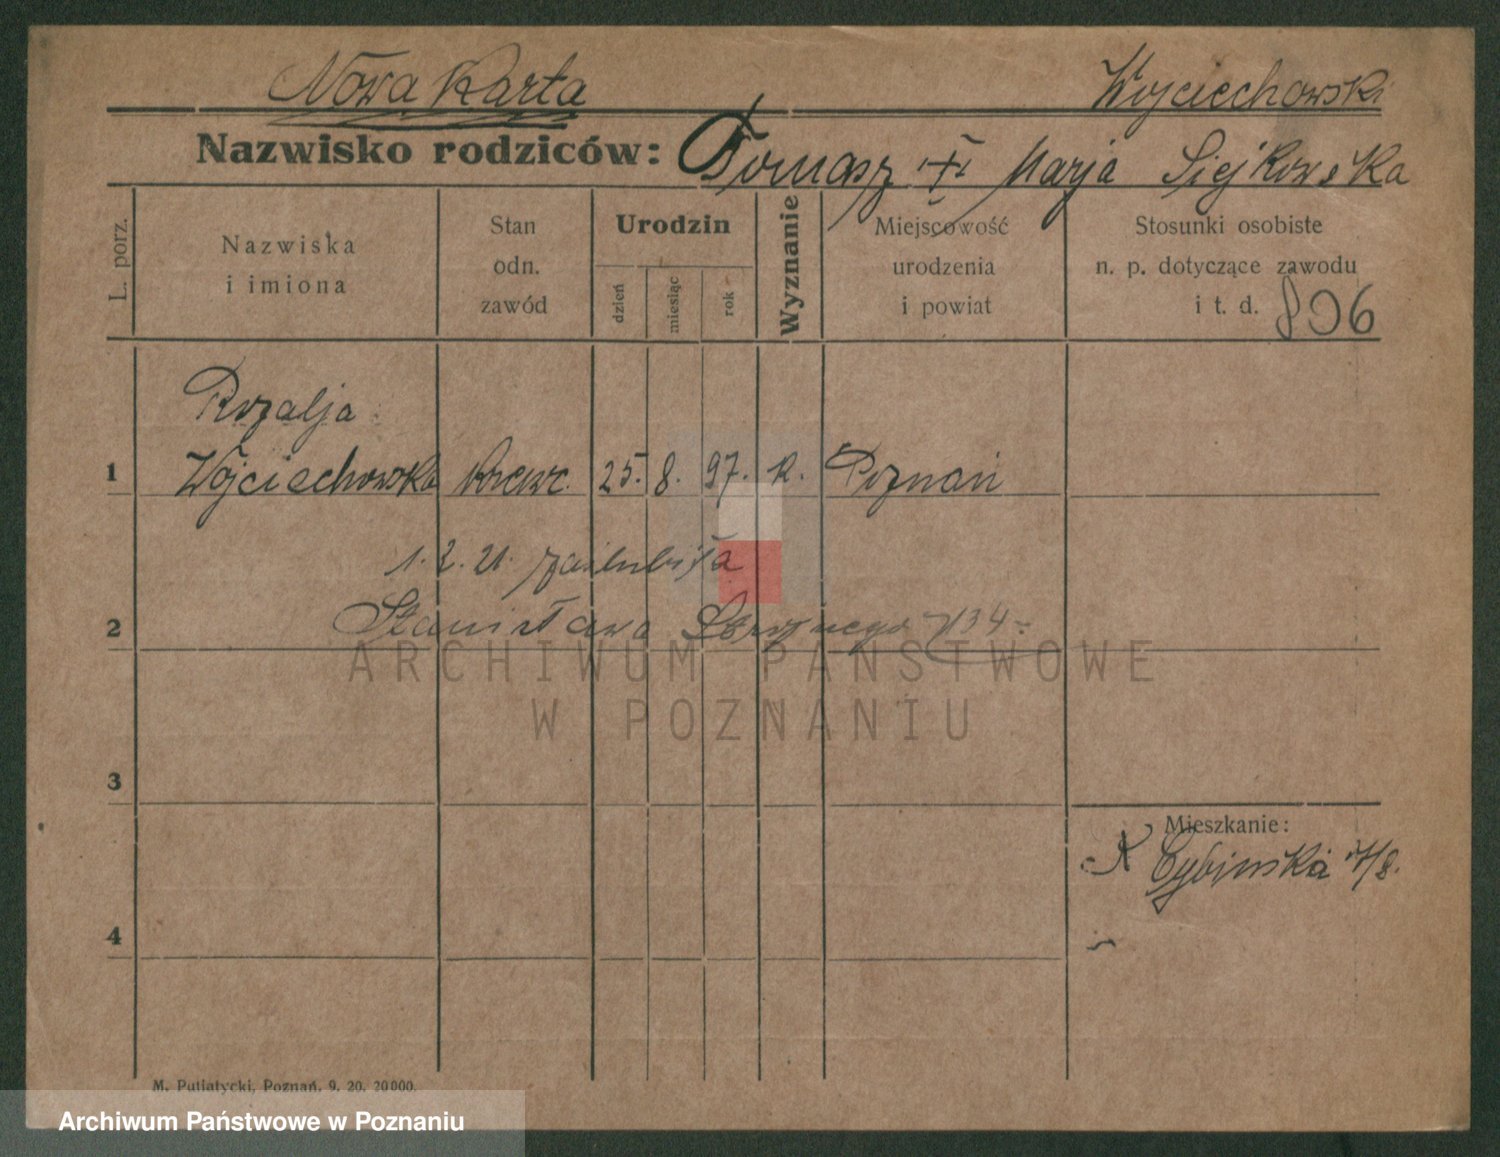 Nowa Karta
Wojciechowski
Nazwisko rodziców: Tomasz Marja Siejkowska
L. porz.
Nazwiska
i imiona
Stan
odn.
zawód
Urodzin
dzień
miesiąc
rok
Wyznanie
Miejscowość
urodzenia
i powiat
Stosunki osobiste
n. p. dotyczące zawodu
i t. d. 896
Rozalja
1 Wojciechowska 25. 8. 97. K. Poznań
1. 2. 21. zaślubiła
2 Stanisława
ARCHIWUM PAŃSTWOWE
W POZNANIU
3
Mieszkanie:
Cybińska 7/8.
4
M. Putiatycki, Poznań. 9. 20. 20000.
Archiwum Państwowe w Poznaniu